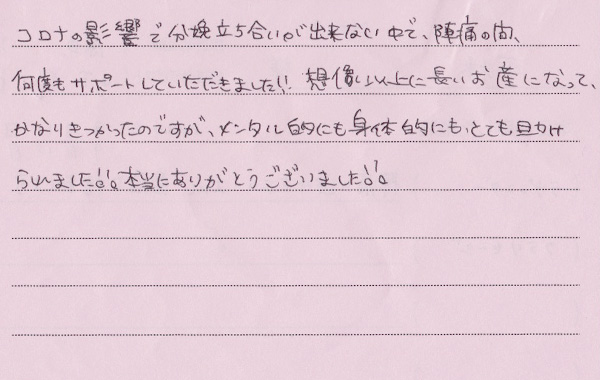 コロナの影響で分娩立ち合いが出来ない中で、陣痛の間、
何度もサポートしていただきました!! 想像以上に長いお産になって、
かなりきつかったのですが、メンタル的にも身体的にも、とても助け
られました!! 本当にありがとうございました!!